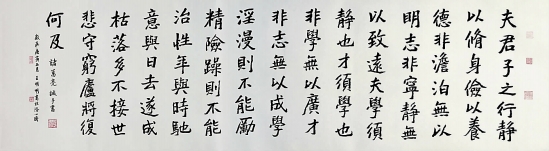 夫君子之行靜
以脩身儉以養
德非澹泊無以
明志非寧靜無
以致遠夫學須
靜也才須學也
非學無以廣才
非志無以成學
淫漫則不能勵
精險躁則不能
治性年與時馳
意與日去遂成
枯落多不接世
悲守窮廬將復
何及 諸葛亮誡子書